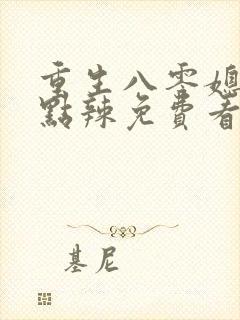 重生八零媳
點辣免費看
基尼